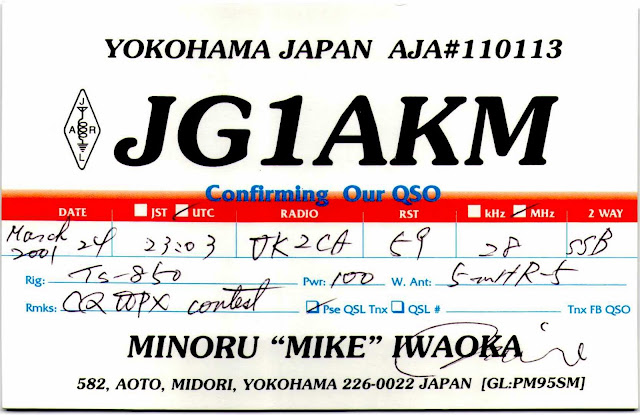 YOKOHAMA JAPAN AJA#110113
J
A R
L
JG1AKM
Confirming Our QSO
DATE JST UTC RADIO RST kHz MHz 2 WAY
March 2001 24 23:03 VK2CA 59 28 SSB
Rig: TS-850 Pwr: 100 W. Ant: 5-mHR-5
Rmks: CQ WPX contest Pse QSL Tnx QSL # Tnx FB QSO
MINORU “MIKE” IWAOKA
582, AOTO, MIDORI, YOKOHAMA 226-0022 JAPAN [GL:PM95SM]